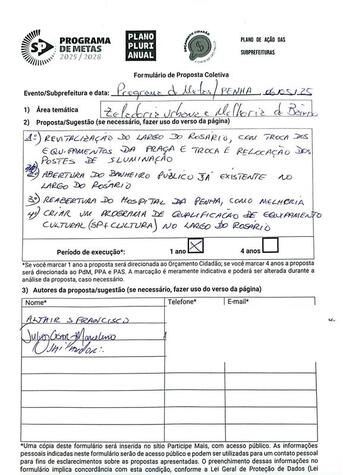 PROGRAMA
DE METAS
2025 / 2028
PLANO
PLURI
ANUAL
PLANO DE AÇÃO DAS
SUBPREFEITURAS
Formulário de Proposta Coletiva
Evento/Subprefeitura e data: Programa de Metas/PENHA 06/05/25
1) Área temática Zeladoria Urbana e Melhoria de Bairro
2) Proposta/Sugestão (se necessário, fazer uso do verso da página)
1º) REVITALIZAÇÃO DO LARGO DO ROSÁRIO, COM TROCA DOS
EQUIPAMENTOS DA PRAÇA E TROCA E RELOCAÇÃO DOS
POSTES DE ILUMINAÇÃO
2º) ABERTURA DO BANHEIRO PÚBLICO JÁ EXISTENTE NO
LARGO DO ROSÁRIO
3º) REABERTURA DO HOSPITAL DA PENHA, COMO MELHORIA
4º) CRIAR UM PROGRAMA DE QUALIFICAÇÃO DE EQUIPAMENTO
CULTURAL (SP+CULTURA) NO LARGO DO ROSÁRIO
Período de execução*: 1 ano 4 anos
*Se você marcar 1 ano a proposta será direcionada ao Orçamento Cidadão; se você marcar 4 anos a proposta
será direcionada ao PdM, PPA e PAS. A marcação é meramente indicativa e poderá ser alterada durante a
análise da proposta, caso necessário.
3) Autores da proposta/sugestão (se necessário, fazer uso do verso da página)
Nome* Telefone* E-mail*
ALTAIR S FRANCISCO
*Uma cópia deste formulário será inserida no sítio Participe Mais, com acesso público. As informações
pessoais indicadas neste formulário serão de acesso público e poderão ser utilizadas para um contato pessoal
para fins de esclarecimentos sobre as propostas apresentadas. O preenchimento dessas informações no
formulário implica concordância com esta condição, conforme a Lei Geral de Proteção de Dados (Lei